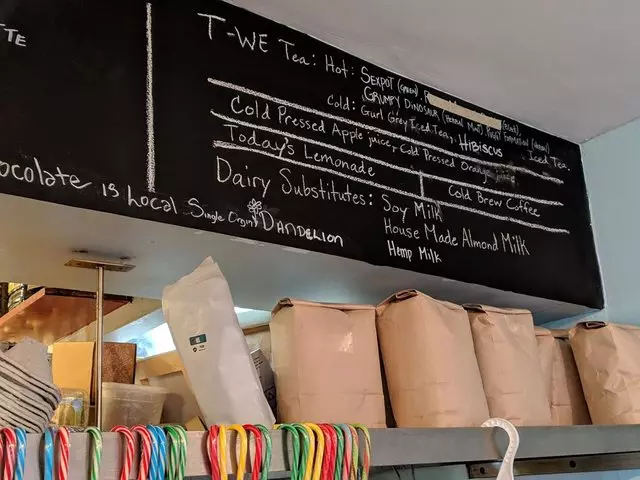 TTE
T-WE Tea: Hot: SEXPOT (GREEN),
GRUMPY DINOSAUR (Herbal Mat), PUSSY FORMATION
Cold: Gurl Grey Iced Tea, HIBISCUS Iced Tea.
Cold Pressed Apple juice, Cold Pressed Orange
Today's Lemonade
Cold Brew Coffee
Dairy Substitutes: Soy Milk
House Made Almond Milk
Hemp Milk
ocolate is Local Single Origin DANDELION